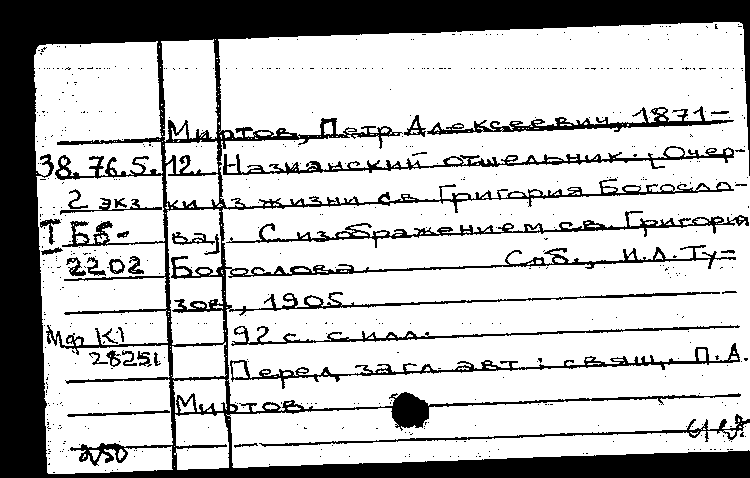 Миртов, Петр Алексеевич, 1871-
38.76.5.12. Назианский отшельник. [Очер-
2 экз ки из жизни св. Григория Богосло-
I Бб- ва]. С изображением св. Григория
2202 Богослова. Спб., И.Л. Ту=
зов, 1905.
Мф К1 92 с. с илл.
28251
Перед загл. авт: свящ. П.А.
Миртов.
2/50